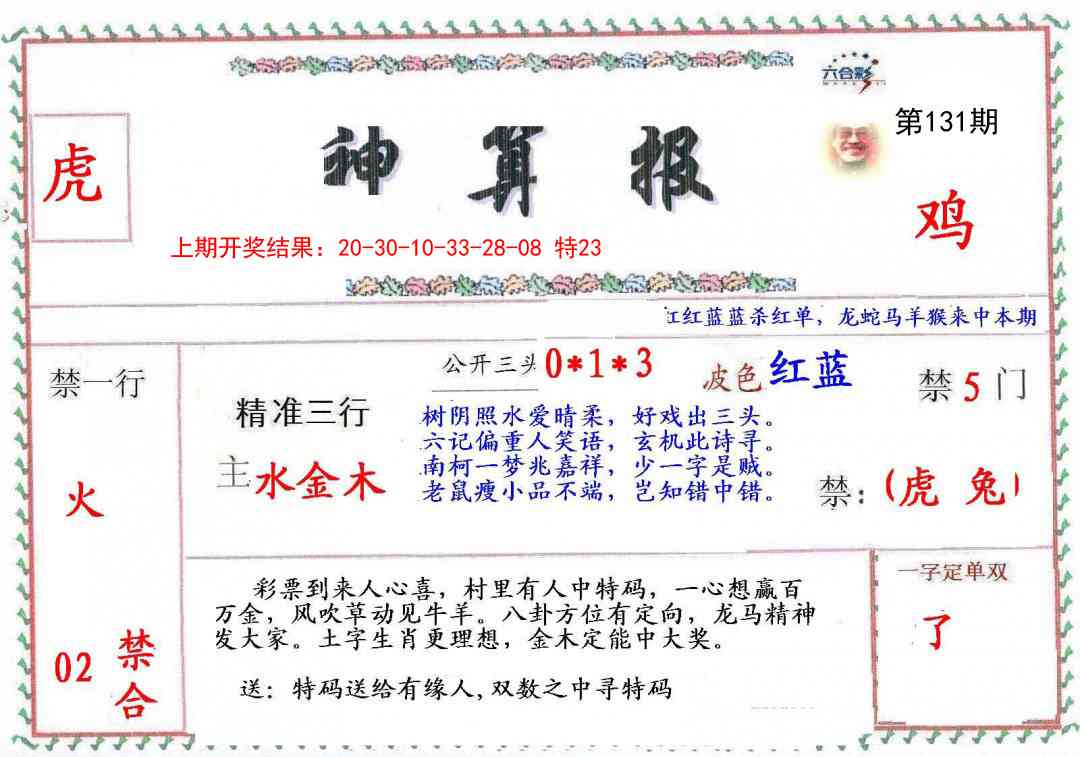 六合彩
第131期
虎
神算报
鸡
上期开奖结果：20-30-10-33-28-08 特23
红红蓝蓝杀红单，龙蛇马羊猴来中本期
禁一行
公开三头 0*1*3
波色 红蓝
禁 5 门
精准三行
树阴照水爱晴柔，好戏出三头。
六记偏重人笑语，玄机此诗寻。
南柯一梦兆嘉祥，少一字是贼。
老鼠瘦小品不端，岂知错中错。
主 水金木
火
禁：(虎 兔)
彩票到来人心喜，村里有人中特码，一心想赢百
万金，风吹草动见牛羊。八卦方位有定向，龙马精神
发大家。土字生肖更理想，金木定能中大奖。
送：特码送给有缘人,双数之中寻特码
一字定单双
了
02 禁合